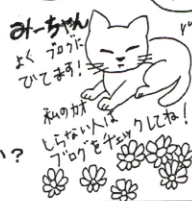 みーちゃん
よく ブログに
でてます!
私のカオ
しらない人は
ブログをチェックしてね!
い?